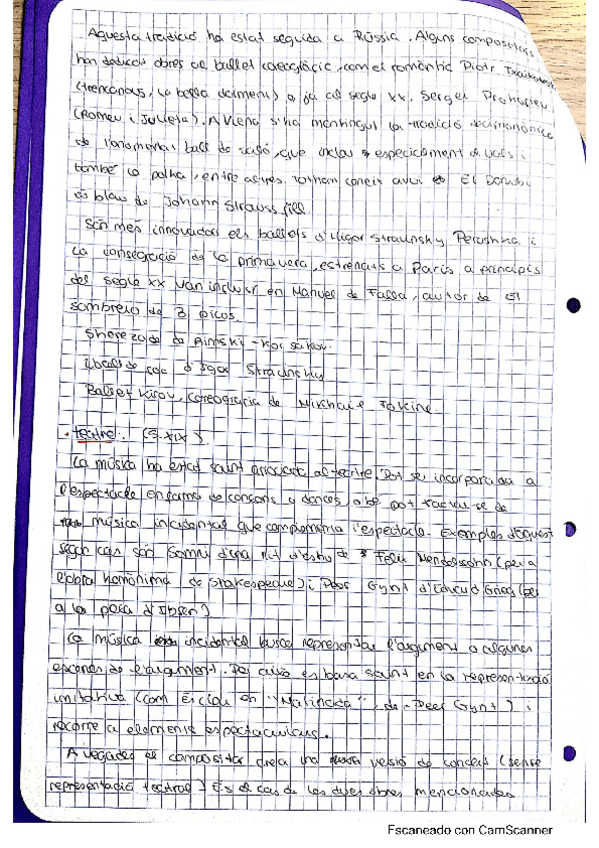 Aquesta tradició ha estat seguida a Rússia. Alguns compositors
han dedicat obres al ballet coreogràfic, com el romàntic Piotr Txaikovski
(trencanous, La bella dorment) o ja al segle XX, Sergei Prokofiev
(Romeu i Julieta). A Viena s'ha mantingut la tradició
de l'anomenat ball de saló, que inclou especialment de vals i
també la polka, entre altres. Tothom coneix avui El Danubi
és blau de Johann Strauss fill.
Són més innovadors els ballets d'Igor Stravinsky Petrushka i
La consagració de la primavera, estrenats a París a principis
del segle XX van incluir en Manuel de Falla, autor de El
sombrero de 3 picos.
Sherezade de Rimski-Korsakov.
d'Igor Stravinsky
Ballet Kirov, coreografia de Mikhail Fokine.
. teatre: (S. XIX)
La música ha estat sovint associada al teatre. Pot ser incorporada a
l'espectacle en forma de cançons o dances, o bé pot tractar-se de
música incidental que complementa l'espectacle. Exemples d'aquest
segon cas són Somni d'una nit d'estiu de Felix Mendelssohn (per a
l'obra homònima de Shakespeare) i Peer Gynt d'Edvard Grieg (per
a la peça d'Ibsen)
La música incidental busca representar l'argument o algunes
escenes de l'argument. Per això es basa sovint en la representació
imitativa (com Escolta en "Matinada", de Peer Gynt) i
recorre a elements espectaculars.
A vegades el compositor crea una versió de concert (sense
representació teatral) És el cas de les dues obres mencionades
Escaneado con CamScanner